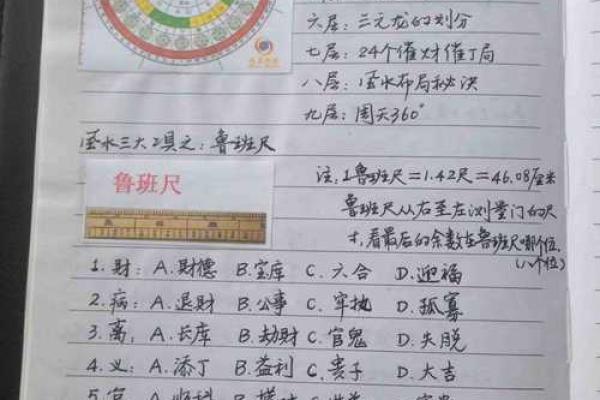 六层：三元龙的划分
七层：24个催财催丁局
八层：风水布局秘决
九层：周天360°
风水三大工具之：鲁班尺
鲁班尺
注：1鲁班尺＝1.42尺＝46.08厘米
鲁班尺从右至左测量门的尺
寸，看最后的余数在鲁班尺哪个位，
(八个位)
1.财：A.财德 B.宝库 C.六合 D.迎福
2.病：A.退财 B.公事 C.牢执 D.孤寡
3.离：A.长库 B.劫财 C.官鬼 D.失脱
4.义：A.添丁 B.益利 C.贵子 D.大吉
5.官：A.顺科